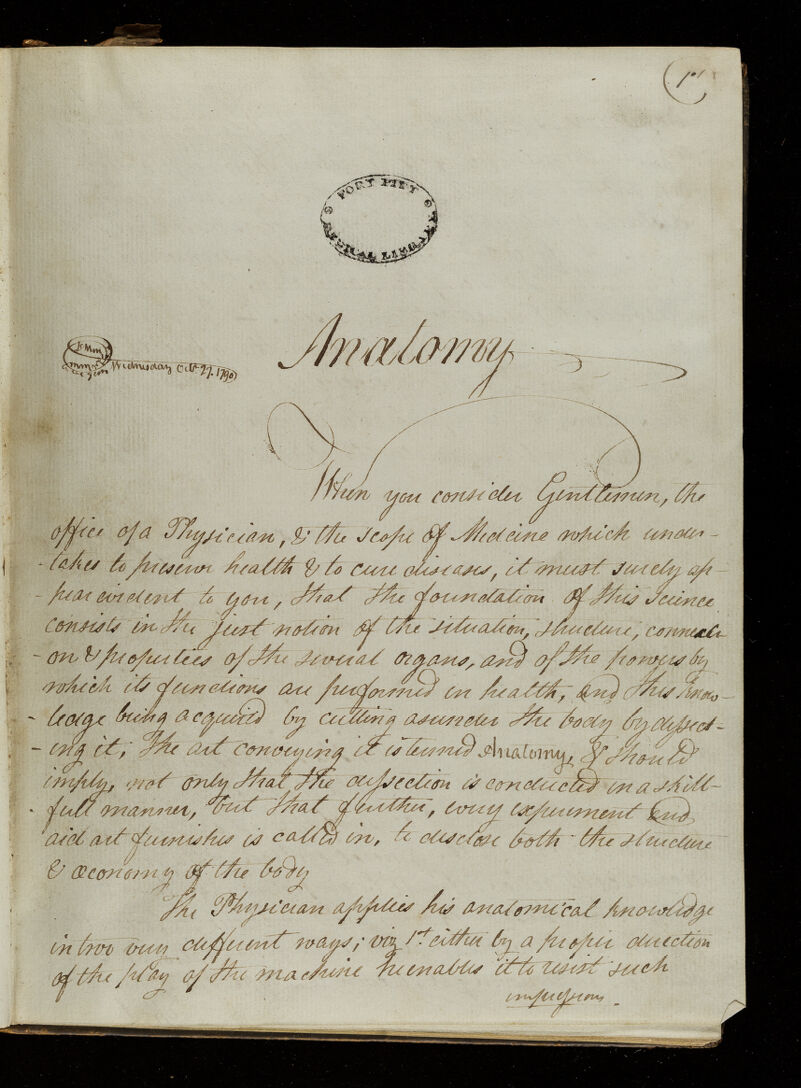 1st
FORT PITT
MEDICAL LIBRARY
Anatomy
Wednesday Octr. 27. 1790
When you consider Gentlemen, the
office of a Physician, & the scope of Medicine which under-
-takes to preserve health & to cure diseases, it must surely ap-
-pear evident to you, that the foundation of this science
consists in the just notion of the situation, structure, connecti-
-on & properties of the several organs, and of the powers by
which its functions are performed in health, and this know-
-ledge being acquired by cutting asunder the body by dissect-
-ing it; The art conveying it is termed Anatomy, & should
imply, not only that the dissection is conducted in a skill-
-full manner, but that further, every experiment and
aid art furnishes is called in, to disclose both the structure
& œconomy of the body
The Physician applies his anatomical knowledge
in two very different ways; viz 1st. either by a proper direction
of the play of the machine he enables it to resist such
impressions.